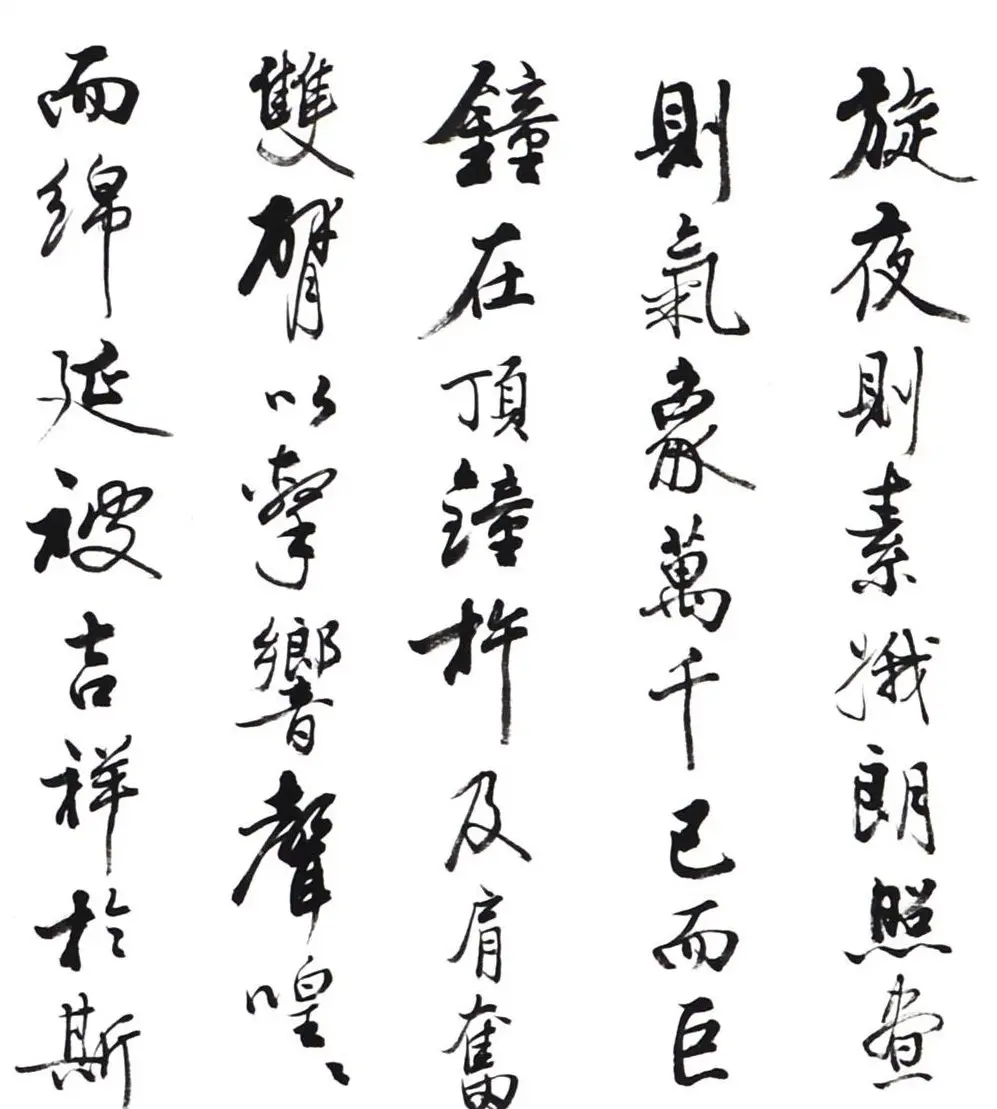 旋夜則素娥朗照晝
則氣象萬千已而巨
鐘在頂鐘杵及肩奮
雙臂以擊響聲喤〻
而綿延被吉祥於斯